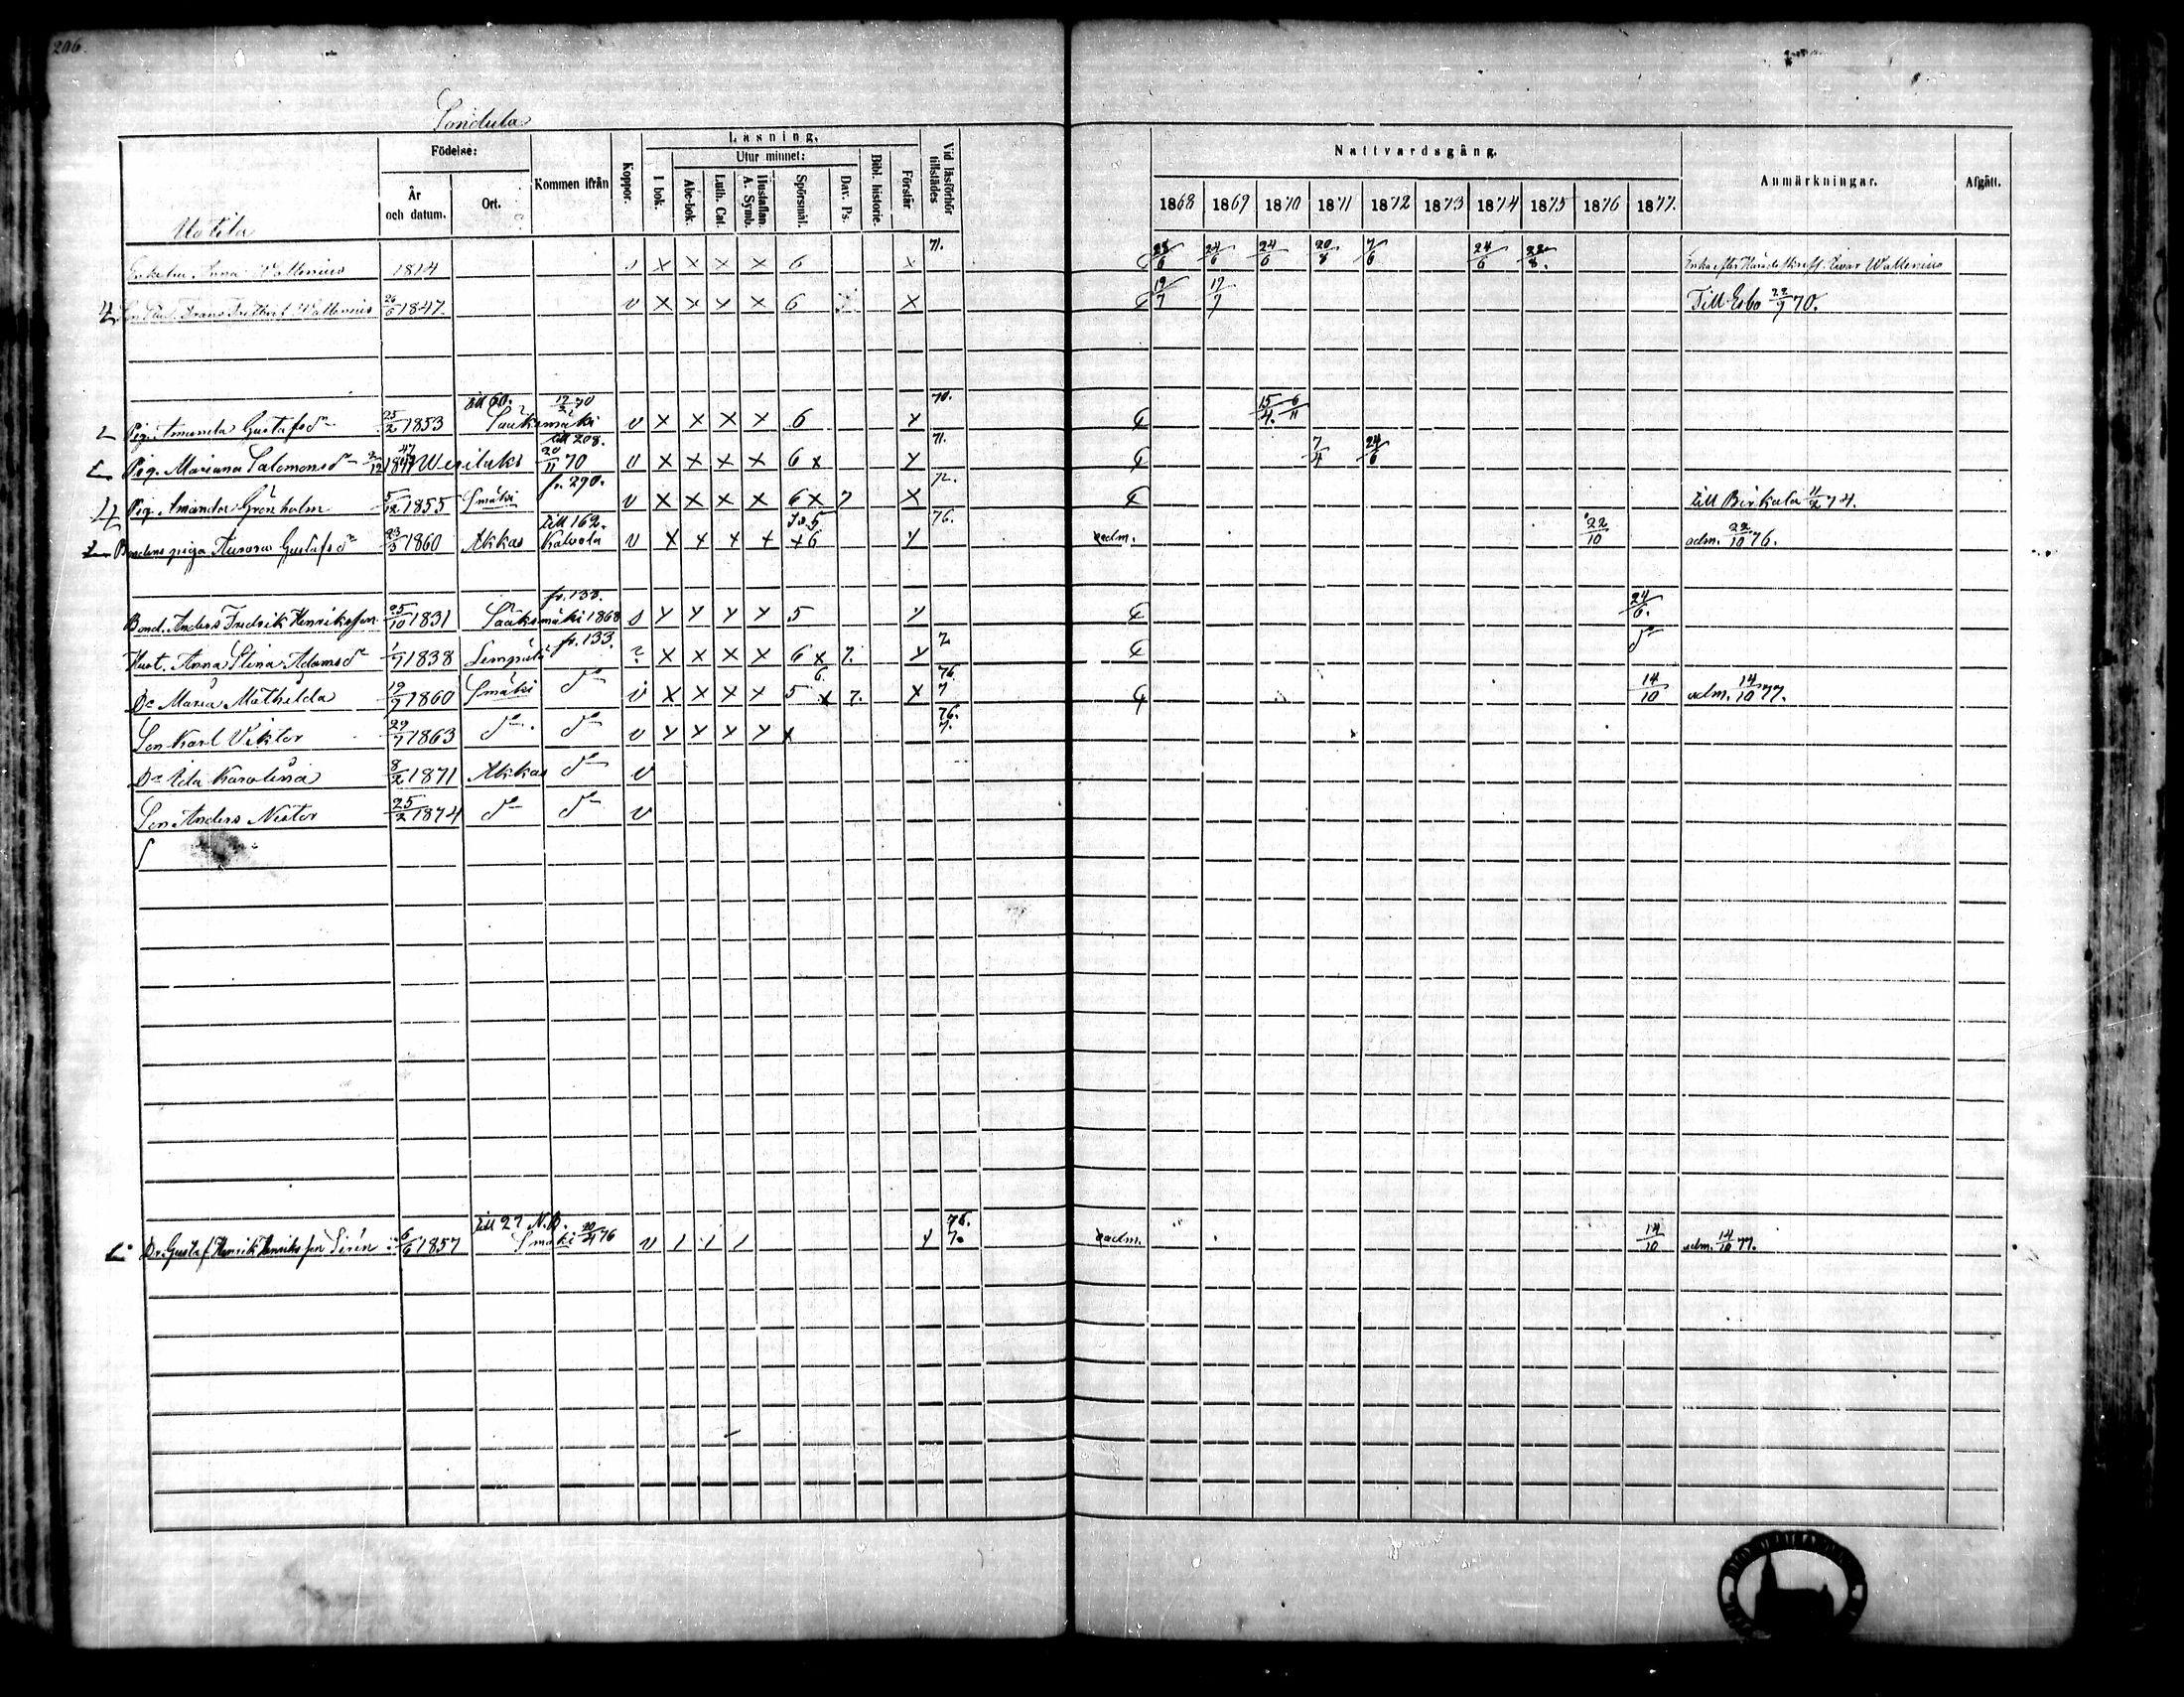 206.
Sondula
Födelse:
År och datum.
Ort.
Kommen ifrån
Koppor.
Läsning.
I bok.
Utur minnet:
Abc-bok.
Luth. Cat.
Hustaflan. A. Symb.
Spörsmål.
Dav. Ps.
Bibl. historie.
Förstår
Vid läsförhör tillstädes
Nattvardsgång.
1868 1869 1870 1871 1872 1873 1874 1875 1876 1877.
Anmärkningar.
Afgått.
Uotila
71.
Enkefru Anna Wallenius 1814 s x x x x 6 x 24/6 24/6 20/8 7/6 24/6 22/8. Enka efter Wallenius
Frans Fridthiof Wallenius 26/6 1847. v x x x x 6 x 19/7 17/7 Till Esbo 22/9 70.
till 60. 17/2 70 70.
Pig. Amanda Gustafsdr 25/2 1853 Sääksmäki v x x x x 6 x 15/4. 6/11
till 208. 71.
Pig. Mariana Salomonsdr 2/12 1847 Wesilaks 20/11 70 v x x x x 6 x x 7/4 24/6
fr. 290. 72.
Pig. Amanda Grönholm 5/12 1855 Smäki v x x x x 6 x 7 x till Birkala 11/2 74.
till 162. 76.
Bondens piga Aurora Gustafsdr 23/3 1860 Akkas Kalvola v x x x x x 6 x adm. 22/10 adm. 22/10 76.
fr. 133.
Bond. Anders Fredrik Henriksson 25/10 1831 Sääksmäki 1868 s x x x x 5 x 24/6.
fr. 133. 7
Hust. Anna Stina Adamsdr 1/7 1838 Lempälä ? x x x x 6 x 7. x do
6. 76.
Dr Maria Mathilda 19/7 1860 Smäki do v x x x x 5 x 7. x 7 14/10 adm. 14/10 77.
76.
Son Karl Viktor 29/7 1863 do do v x x x x x 7.
Dr Ida Karolina 8/2 1871 Akkas do v
Son Anders Nestor 25/2 1874 do do v
till 27 N.B. 76.
Dr. Gustaf Henrik Henriksson Sirén 6/6 1857 Smäki 20/4 76 v 7. adm. 14/10 adm. 14/10 77.